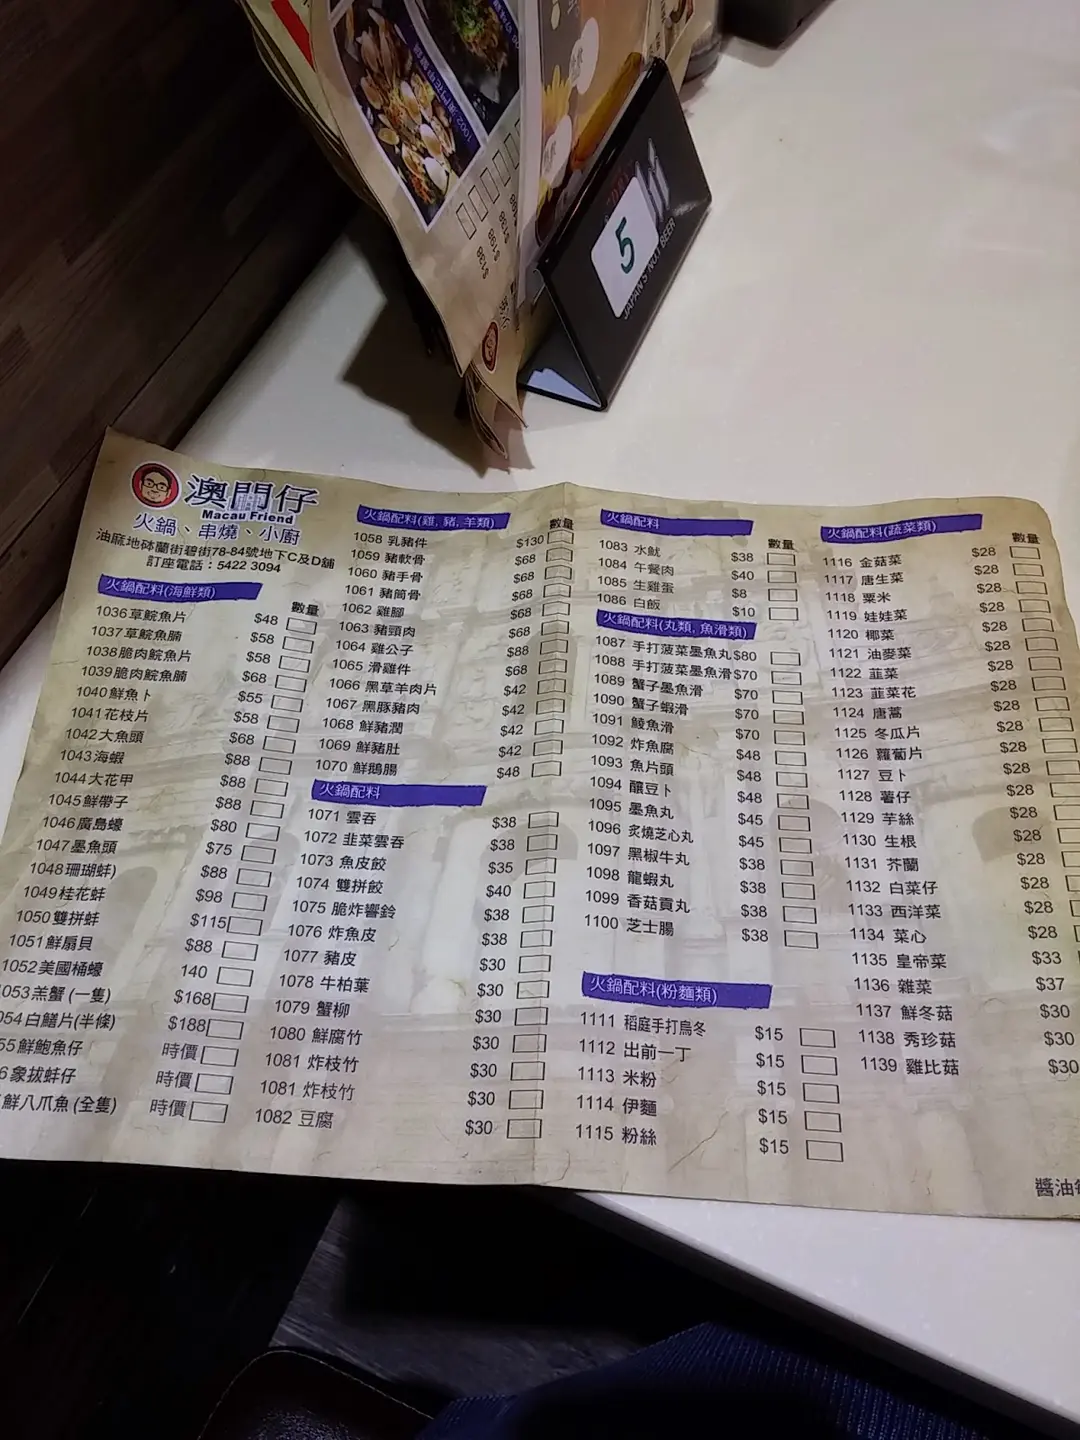 5
JAPAN'S NO.1 BEER
$138
$138
$198
澳門仔
Macau Friend
火鍋、串燒、小廚
油麻地砵蘭街碧街78-84號地下C及D舖
訂座電話：5422 3094
火鍋配料(海鮮類)
數量
1036草鯇魚片 $48
1037草鯇魚腩 $58
1038脆肉鯇魚片 $58
1039脆肉鯇魚腩 $68
1040鮮魚卜 $55
1041花枝片 $58
1042大魚頭 $68
1043海蝦 $88
1044大花甲 $88
1045鮮帶子 $88
1046廣島蠔 $80
1047墨魚頭 $75
1048珊瑚蚌) $88
1049桂花蚌 $98
1050雙拼蚌 $115
1051鮮扇貝 $88
1052美國桶蠔 140
1053羔蟹 (一隻) $168
054白鱔片(半條) $188
55鮮鮑魚仔 時價
6象拔蚌仔 時價
鮮八爪魚 (全隻) 時價
火鍋配料(雞, 豬, 羊類)
數量
1058 乳豬件 $130
1059 豬軟骨 $68
1060 豬手骨 $68
1061 豬筒骨 $68
1062 雞腳 $68
1063 豬頸肉 $68
1064 雞公子 $88
1065 滑雞件 $68
1066 黑草羊肉片 $42
1067 黑豚豬肉 $42
1068 鮮豬潤 $42
1069 鮮豬肚 $42
1070 鮮鵝腸 $48
火鍋配料
1071 雲吞 $38
1072 韭菜雲吞 $38
1073 魚皮餃 $35
1074 雙拼餃 $40
1075 脆炸響鈴 $38
1076 炸魚皮 $38
1077 豬皮 $30
1078 牛柏葉 $30
1079 蟹柳 $30
1080 鮮腐竹 $30
1081 炸枝竹 $30
1081 炸枝竹 $30
1082 豆腐 $30
火鍋配料
數量
1083 水魷 $38
1084 午餐肉 $40
1085 生雞蛋 $8
1086 白飯 $10
火鍋配料(丸類, 魚滑類)
1087 手打菠菜墨魚丸 $80
1088 手打菠菜墨魚滑 $70
1089 蟹子墨魚滑 $70
1090 蟹子蝦滑 $70
1091 鯪魚滑 $48
1092 炸魚腐 $48
1093 魚片頭 $48
1094 釀豆卜 $45
1095 墨魚丸 $45
1096 炙燒芝心丸 $38
1097 黑椒牛丸 $38
1098 龍蝦丸 $38
1099 香菇貢丸
1100 芝士腸
火鍋配料(粉麵類)
1111 稻庭手打烏冬 $15
1112 出前一丁 $15
1113 米粉 $15
1114 伊麵 $15
1115 粉絲 $15
火鍋配料(蔬菜類)
數量
1116 金菇菜 $28
1117 唐生菜 $28
1118 粟米 $28
1119 娃娃菜 $28
1120 椰菜 $28
1121 油麥菜 $28
1122 韮菜 $28
1123 韮菜花 $28
1124 唐蒿 $28
1125 冬瓜片 $28
1126 蘿蔔片 $28
1127 豆卜 $28
1128 薯仔 $28
1129 芋絲 $28
1130 生根 $28
1131 芥蘭 $28
1132 白菜仔 $28
1133 西洋菜 $28
1134 菜心 $28
1135 皇帝菜 $33
1136 雜菜 $37
1137 鮮冬菇 $30
1138 秀珍菇 $30
1139 雞比菇 $30
醬油每